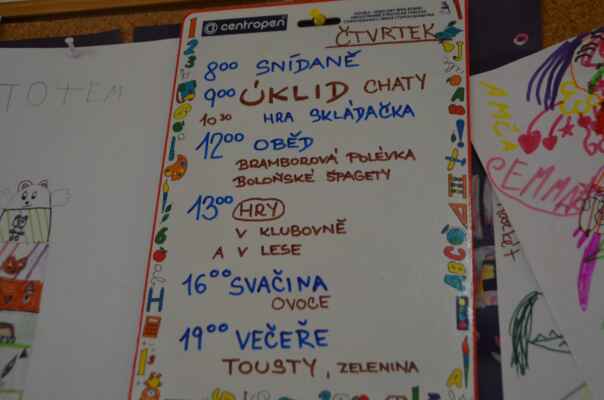 centropen
ČTVRTEK
8⁰⁰ SNÍDANĚ
9⁰⁰ ÚKLID CHATY
10³⁰ HRA SKLÁDAČKA
12⁰⁰ OBĚD
BRAMBOROVÁ POLÉVKA
BOLOŇSKÉ ŠPAGETY
13⁰⁰ HRY
V KLUBOVNĚ
A V LESE
16⁰⁰ SVAČINA
OVOCE
19⁰⁰ VEČEŘE
TOUSTY, ZELENINA
TOTEM